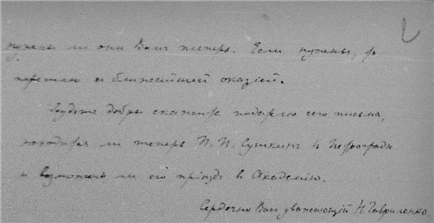 нужны ли они Вам теперь. Если нужны, я
перешлю с ближайшей оказіей.
Будьте добры
письма,
находится ли теперь П. П. Сушкинъ в Петрограде
и возможен ли его приезд в Академию.
Сердечно Вас уважающий Н Гавриленко